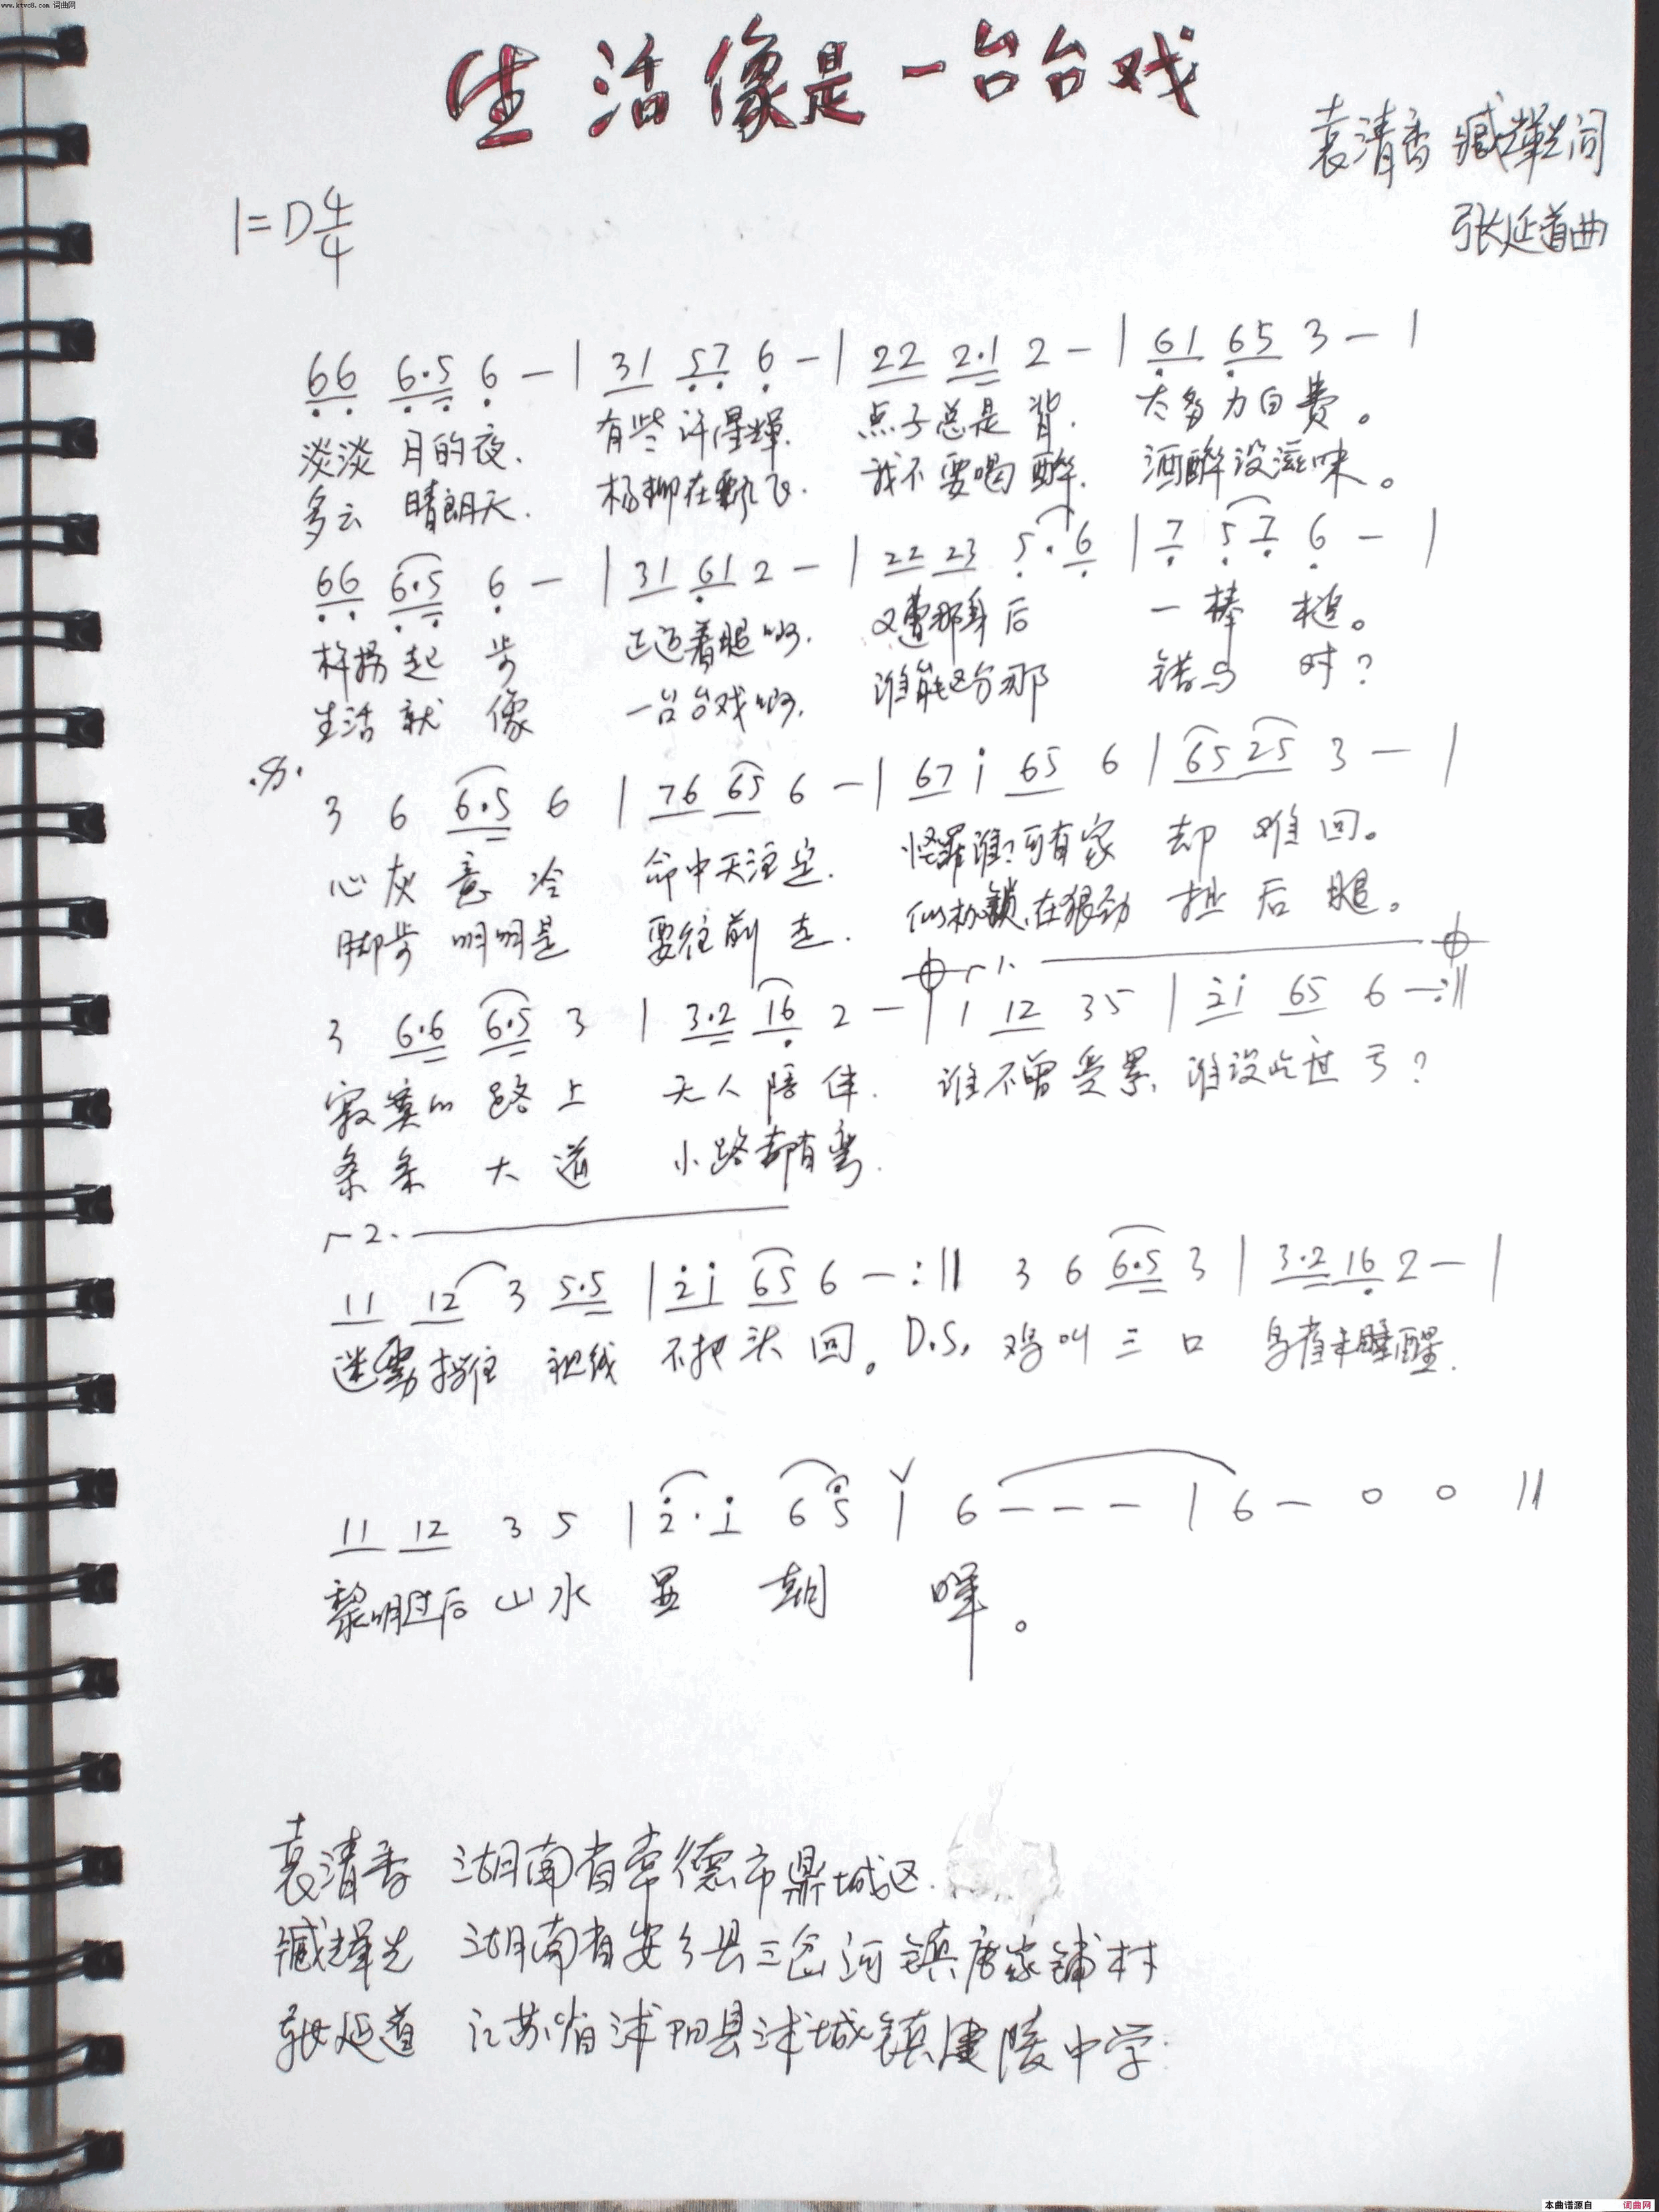 www.ktvc8.com 词曲网
生活像是一台台戏
袁清香 臧辉先词
1=D 4/4
张延道曲
66 6·5 6 — | 31 57 6 — | 22 2·1 2 — | 61 65 3 — |
淡淡 月的夜. 有些许星辉. 点子总是背. 大多力白费。
多云 晴朗天. 杨柳在飘飞. 我不要喝醉. 酒醉没滋味。
66 6·5 6 — | 31 61 2 — | 22 23 5·6 | 7 57 6 — |
拐起步 着腿啊. 又遭那身后 一棒槌。
生活就像 一台台戏啊. 谁能区分那 错与对?
3 6 6·5 6 | 76 65 6 — | 67 i 65 6 | 65 25 3 — |
心灰意冷 命中天注定. 怪罪谁?可有家 却难回。
脚步明明是 要往前走. 似枷锁,在狠劲 拽后腿。
1.
3 6·6 6·5 3 | 3·2 16 2 — | 1 12 35 | 2i 65 6 — :||
寂寞的路上 无人陪伴. 谁不曾受累,谁没吃过亏?
条条大道 小路都有弯.
2.
11 12 3 5·5 | 2i 65 6 — :|| 3 6 6·5 3 | 3·2 16 2 — |
迷雾挡住视线 不把头回。D.S. 鸡叫三口 鸟雀未睡醒.
11 12 3 5 | 2·i 6 5 | 6 — — — | 6 — 0 0 ||
黎明过后山水显朝晖。
袁清香 湖南省常德市鼎城区.
臧辉先 湖南省安乡县三岔河镇唐家铺村
张延道 江苏省沭阳县沭城镇建陵中学
本曲谱源自 词曲网